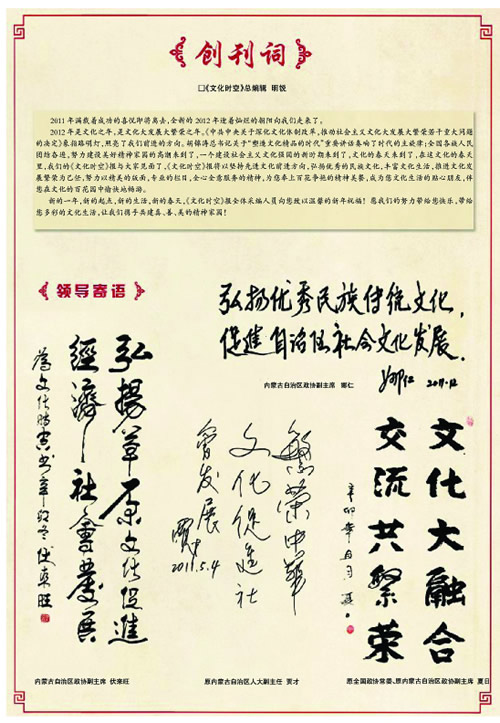 创刊词
□《文化时空》总编辑 明锐
2011年满载着成功的喜悦即将离去,全新的2012年迎着灿烂的朝阳向我们走来了。
2012年是文化之年,是文化大发展大繁荣之年,《中共中央关于深化文化体制改革,推动社会主义文化大发展大繁荣若干重大问题
的决定》象指路明灯,照亮了我们前进的方向。胡锦涛总书记关于“塑造文化精品的时代”重要讲话奏响了时代的主旋律;全国各族人民
团结奋进,努力建设美好精神家园的高潮来到了,一个建设社会主义文化强国的新时期来到了,文化的春天来到了,在这文化的春天
里,我们的《文化时空》报与大家见面了,《文化时空》报将以坚持先进文化前进方向,弘扬优秀的民族文化,丰富文化生活,推进文化发
展繁荣为己任,努力以精美的版面,专业的栏目,全心全意服务的精神,为您奉上百花争艳的精神美餐,成为您文化生活的贴心朋友,伴
您在文化的百花园中愉快地畅游。
新的一年,新的起点,新的生活,新的春天,《文化时空》报全体采编人员向您致以温馨的新年祝福!愿我们的努力带给您快乐,带给
您多彩的文化生活,让我们携手共建真、善、美的精神家园!
领导寄语
弘扬优秀民族传统文化,
促进自治区社会文化发展.
2011.12
内蒙古自治区政协副主席 娜仁
弘揚草原文化促進
經濟社會發展
伏来旺
内蒙古自治区政协副主席 伏来旺
繁荣中华
文化促进社
會发展
2011.5.4
原内蒙古自治区人大副主任 贾才
文化大融合
交流共繁荣
辛卯年
原全国政协常委、原内蒙古自治区政协副主席 夏日